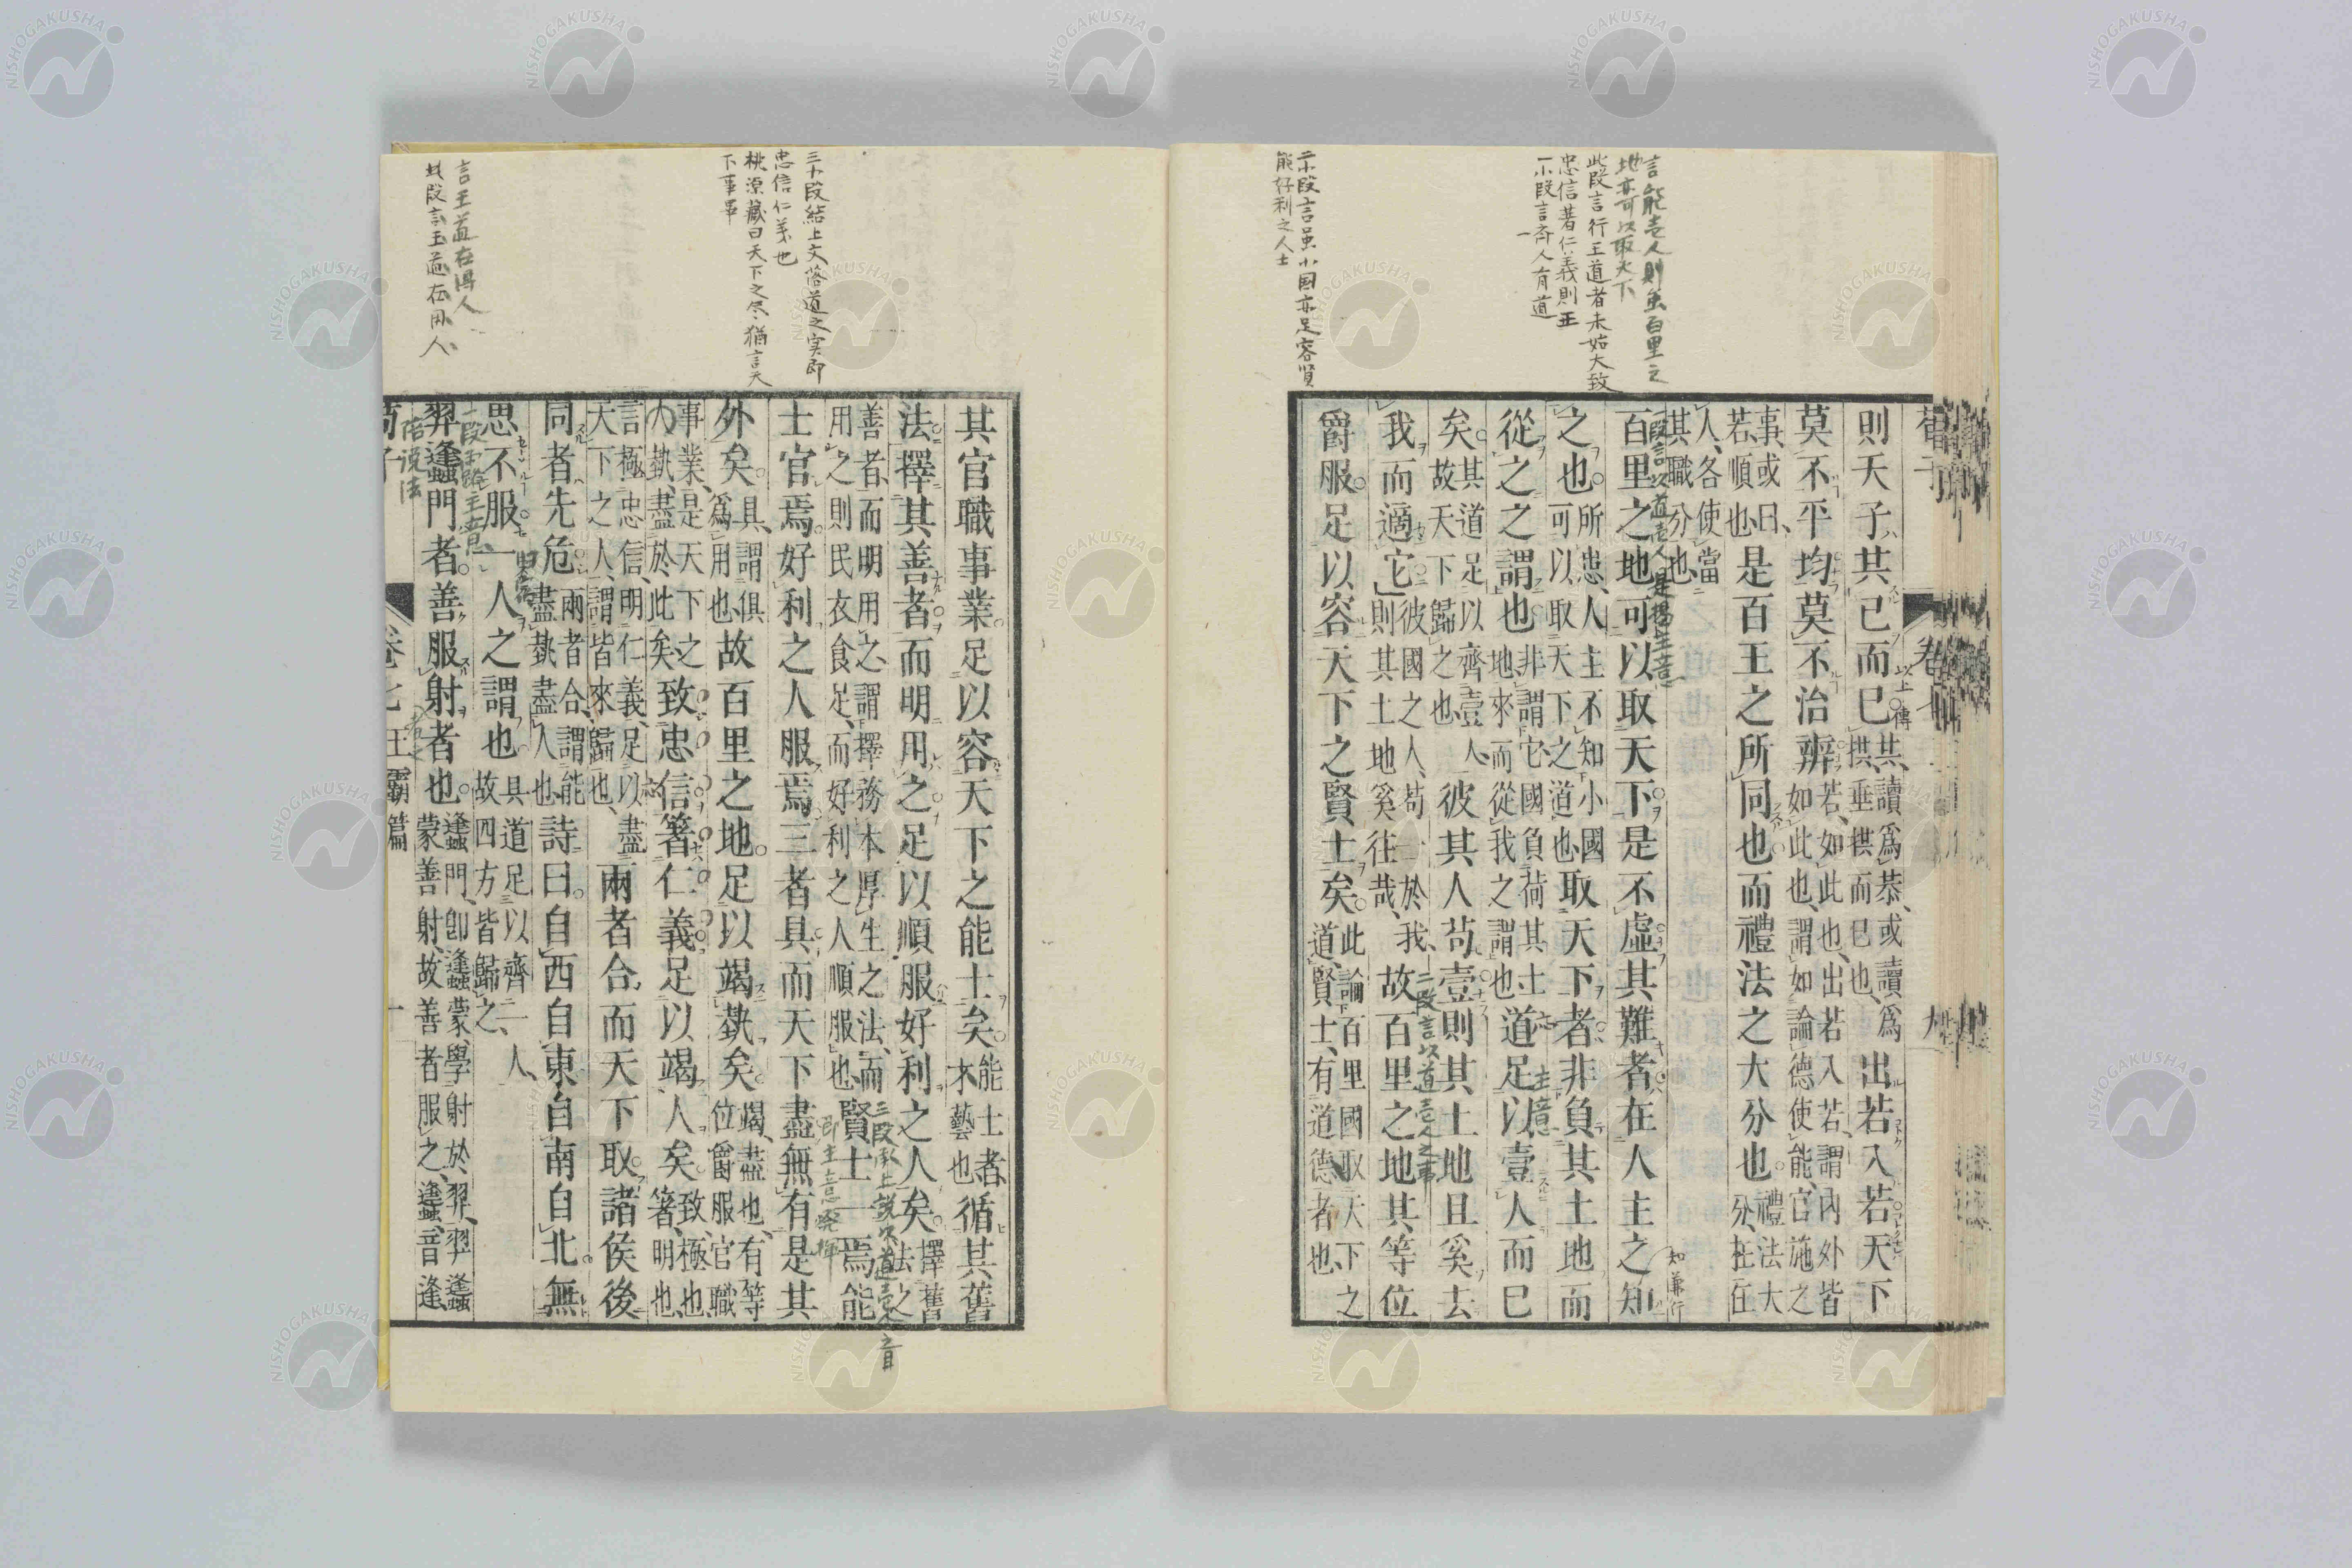 言能壱人則虽百里之
地亦可以取天下
此段言行王道者未始大致
忠信著仁義則王
一小段言斉人有道
二小段言虽小国亦足容賢
能好利之人士
則天子共己而已共讀爲恭或讀爲拱垂拱而已也出若入若天下
莫不平均莫不治辨若如此也出若入若謂內外皆如此也謂如論德使能官施之
事或曰若順也是百王之所同也而禮法之大分也禮法大分在任
人各使當其職分也
百里之地可以取天下是不虛其難者在人主之知
之也所患人主不知小國可以取天下之道也取天下者非負其土地而
從之之謂也非謂它國負荷其土地來而從我之謂也道足以壹人而已
矣其道足以齊壹人故天下歸之也彼其人苟壹則其土地且奚去
我而適它彼國之人苟一於我則其土地奚往哉故百里之地其等位
爵服足以容天下之賢士矣此論百里國取天下之道賢士有道德者也
以上傳
主意
二段言以道壱人之事
三小段結上文落道之实即
忠信仁義也
桃源藏曰天下之尽猶言天
下事畢
言王道在得人
此段言王道在用人
其官職事業足以容天下之能士矣能士者才藝也循其舊
法擇其善者而明用之足以順服好利之人矣擇舊法之
善者而明用之謂擇務本厚生之法而用之則民衣食足而好利之人順服也賢士一焉能
士官焉好利之人服焉三者具而天下盡無有是其
外矣具謂俱爲用也故百里之地足以竭埶矣竭盡也有等位爵服官職
事業是天下之人埶盡於此矣致忠信箸仁義足以竭人矣致極也箸明也
言極忠信明仁義足以盡天下之人謂皆來歸也兩者合而天下取諸侯後
同者先危兩者合謂能盡埶盡人也詩曰自西自東自南自北無
思不服一人之謂也具道足以齊一人故四方皆歸之
羿蠭門者善服射者也蠭門卽蠭蒙學射於羿羿蠭蒙善射故善者服之蠭音逢
三段承上說以道壱人之旨
即主意発揮
一段正路主意
陪説法
荀子 卷七 王霸篇 十